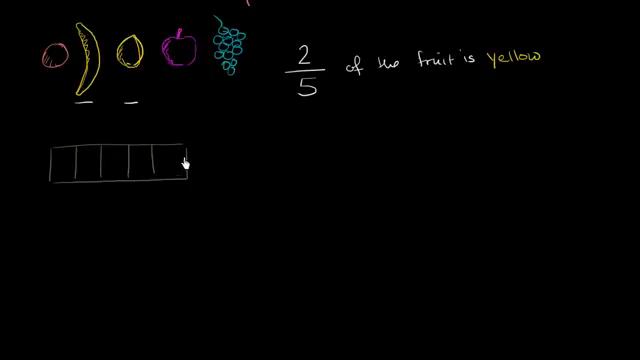 2
5
of the fruit is yellow